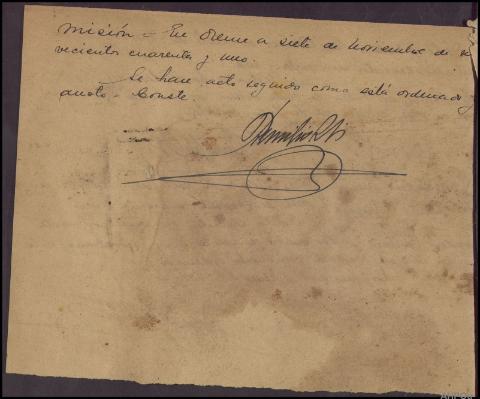 misión = En Orense a siete de Noviembre de no
vecientos cuarenta y uno.
Se hace acto seguido como está ordenado y
anoto. Conste.